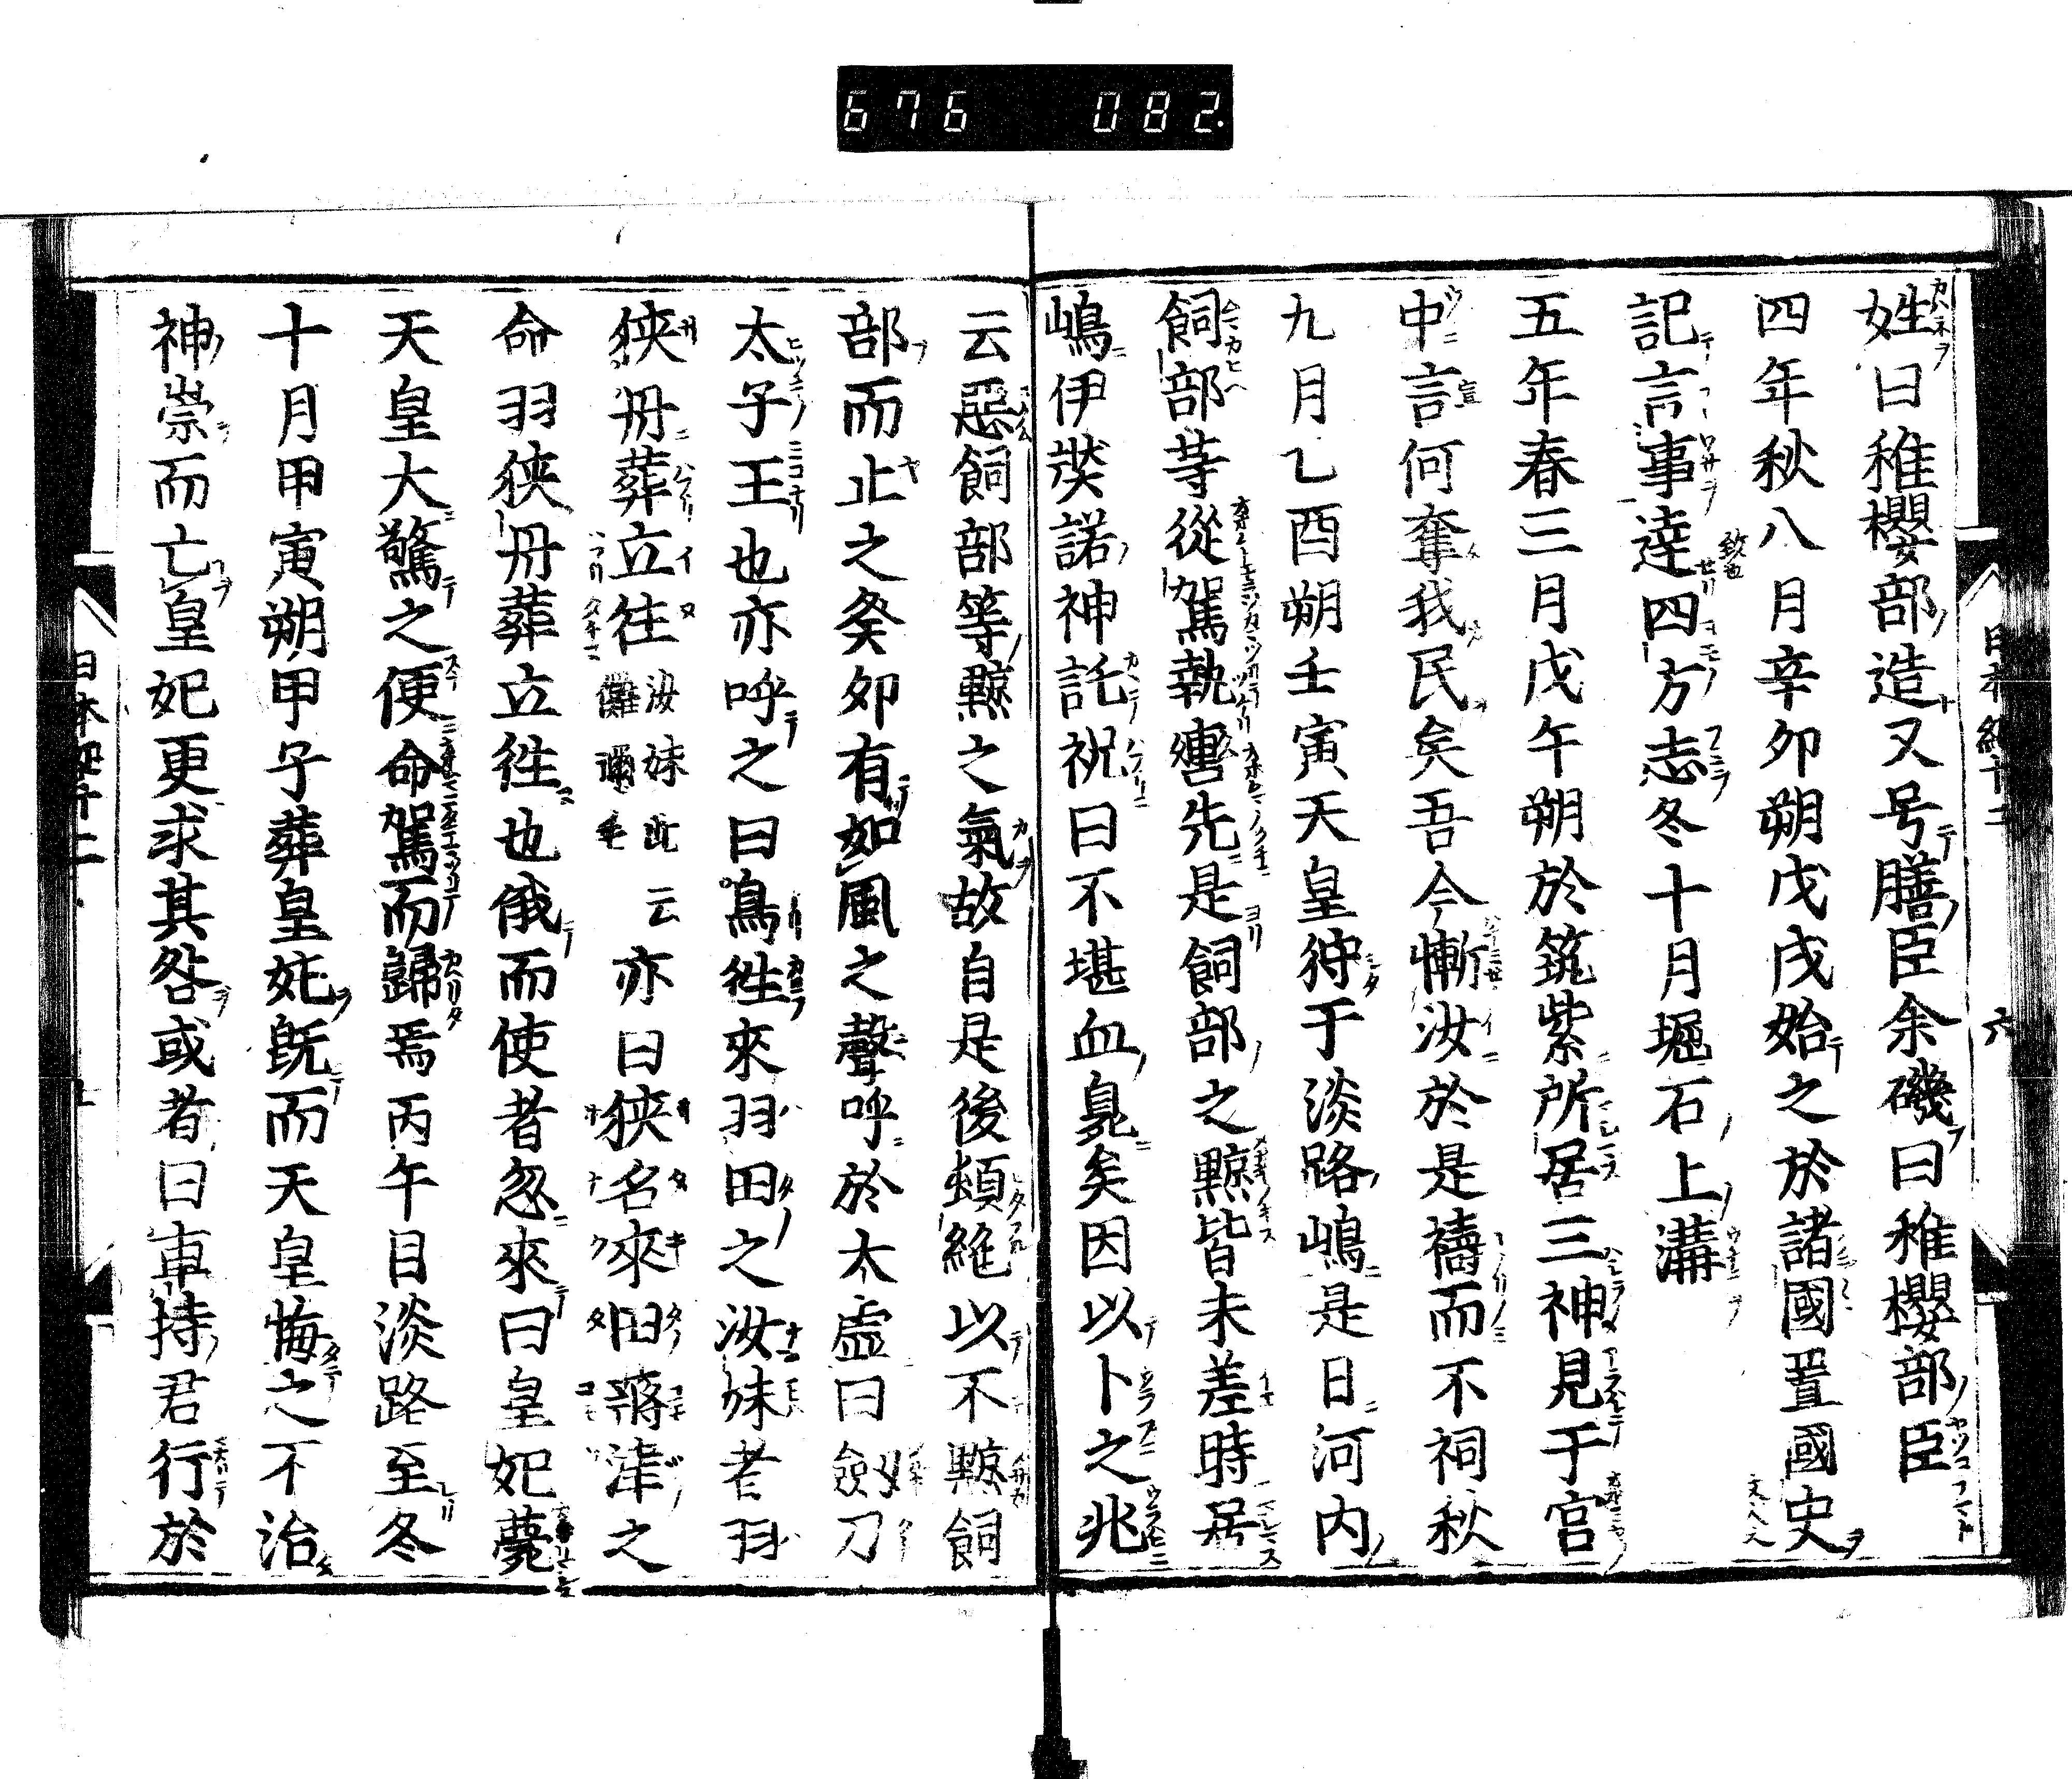 676 082.
姓曰稚櫻部造又号膳臣余磯曰稚櫻部臣
四年秋八月辛卯朔戊戌始之於諸國置國史
記言事達四方志冬十月堀石上溝
五年春三月戊午朔於筑紫所居三神見于宮
中言何奪我民矣吾今慚汝於是禱而不祠秋
九月乙酉朔壬寅天皇狩于淡路嶋是日河内
飼部等從駕執轡先是飼部之黥皆未差時居
嶋伊奘諾神託祝曰不堪血臭矣因以卜之兆
云惡飼部等黥之氣故自是後頓絶以不黥飼
部而止之癸卯有如風之聲呼於太虚曰劔刀
太子王也亦呼之曰鳥徃來羽田之汝妹者羽
狹丹葬立徃汝妹此云儺邇毛亦曰狹名來田蔣津之
命羽狹丹葬立徃也俄而使者忽來曰皇妃薨
天皇大驚之便命駕而歸焉丙午自淡路至冬
十月甲寅朔甲子葬皇妃既而天皇悔之不治
神崇而亡皇妃更求其咎或者曰車持君行於
日本紀十二
六